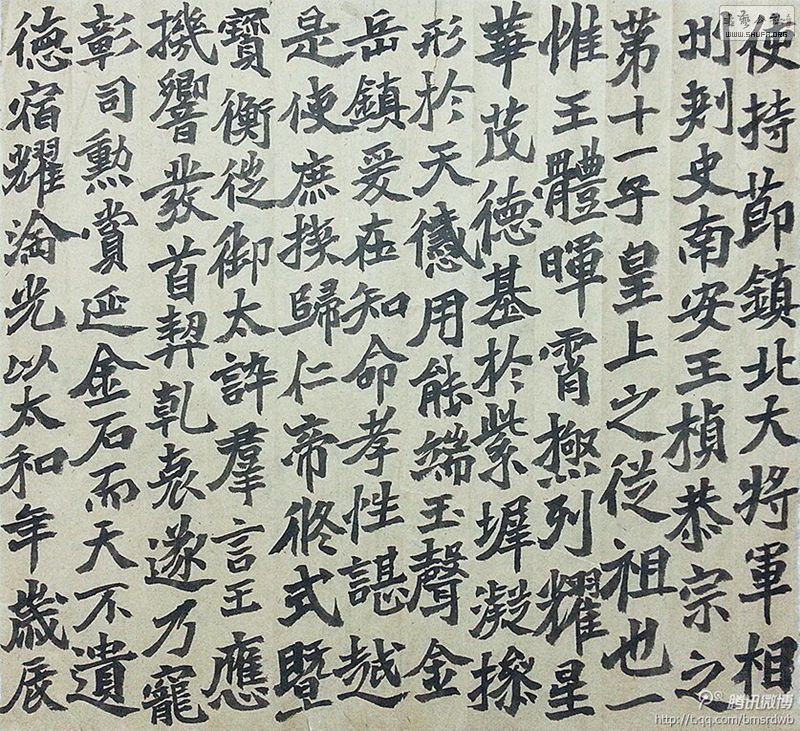 使持莭鎮北大將軍相
州刾史南安王楨恭宗之
苐十一子皇上之從祖也一
惟王體暉霄極列耀星
華茂德基於紫墀凝操
形於天感用能端玉聲金
岳鎮爰在知命孝性諶越
是使庶挨歸仁帝脩式暨
寶衡從御太誶羣言王應
機響發首契乹衷遂乃寵
彰司勲賞延金石而天不遺
德宿耀淪光以太和年歲辰
WWW.SHUFA.ORG
腾讯微博
http://t.qq.com/bmsrdwb